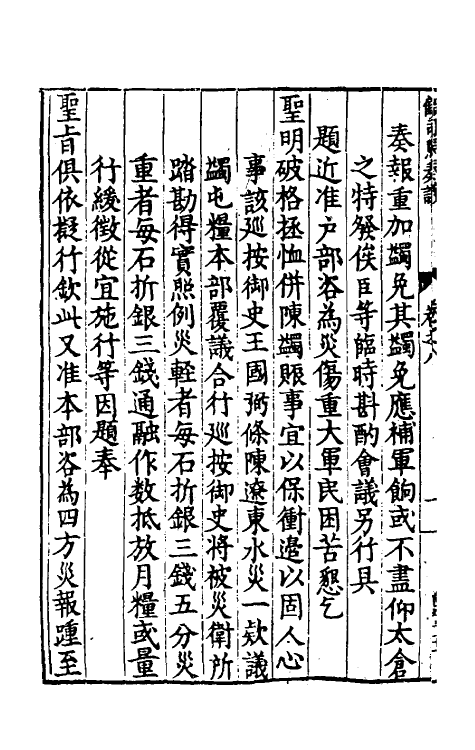 奏報重加蠲免其蠲免應補軍餉或不盡仰太倉
之特發俟臣等臨時斟酌會議另行具
題近准戶部咨為災傷重大軍民困苦懇乞
聖明破格拯恤併陳蠲賑事宜以保衝邉以固人心
事該巡按御史王國弼條陳遼東水災一欵議
蠲屯糧本部覆議合行巡按御史將被災衛所
踏勘得實照例災輕者每石折銀三錢五分災
重者每石折銀三錢通融作数抵放月糧或量
行緩徵從宜施行等因題奉
聖旨俱依擬行欽此又准本部咨為四方災報踵至
卷之八